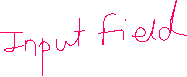 Input field